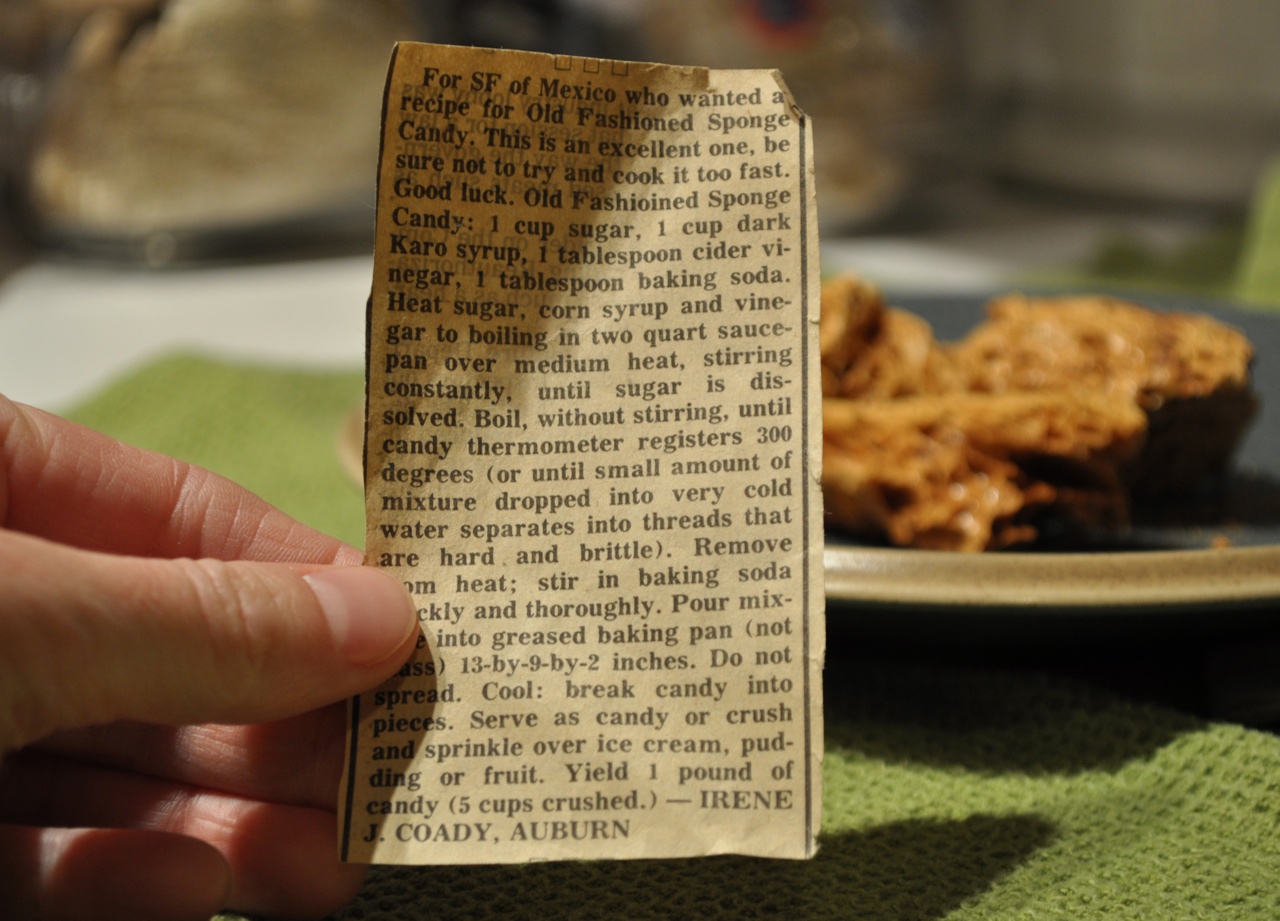 For SF of Mexico who wanted a
recipe for Old Fashioned Sponge
Candy. This is an excellent one, be
sure not to try and cook it too fast.
Good luck. Old Fashioined Sponge
Candy: 1 cup sugar, 1 cup dark
Karo syrup, 1 tablespoon cider vi-
negar, 1 tablespoon baking soda.
Heat sugar, corn syrup and vine-
gar to boiling in two quart sauce-
pan over medium heat, stirring
constantly, until sugar is dis-
solved. Boil, without stirring, until
candy thermometer registers 300
degrees (or until small amount of
mixture dropped into very cold
water separates into threads that
are hard and brittle). Remove
om heat; stir in baking soda
ckly and thoroughly. Pour mix-
e into greased baking pan (not
ass) 13-by-9-by-2 inches. Do not
spread. Cool: break candy into
pieces. Serve as candy or crush
and sprinkle over ice cream, pud-
ding or fruit. Yield 1 pound of
candy (5 cups crushed.) — IRENE
J. COADY, AUBURN